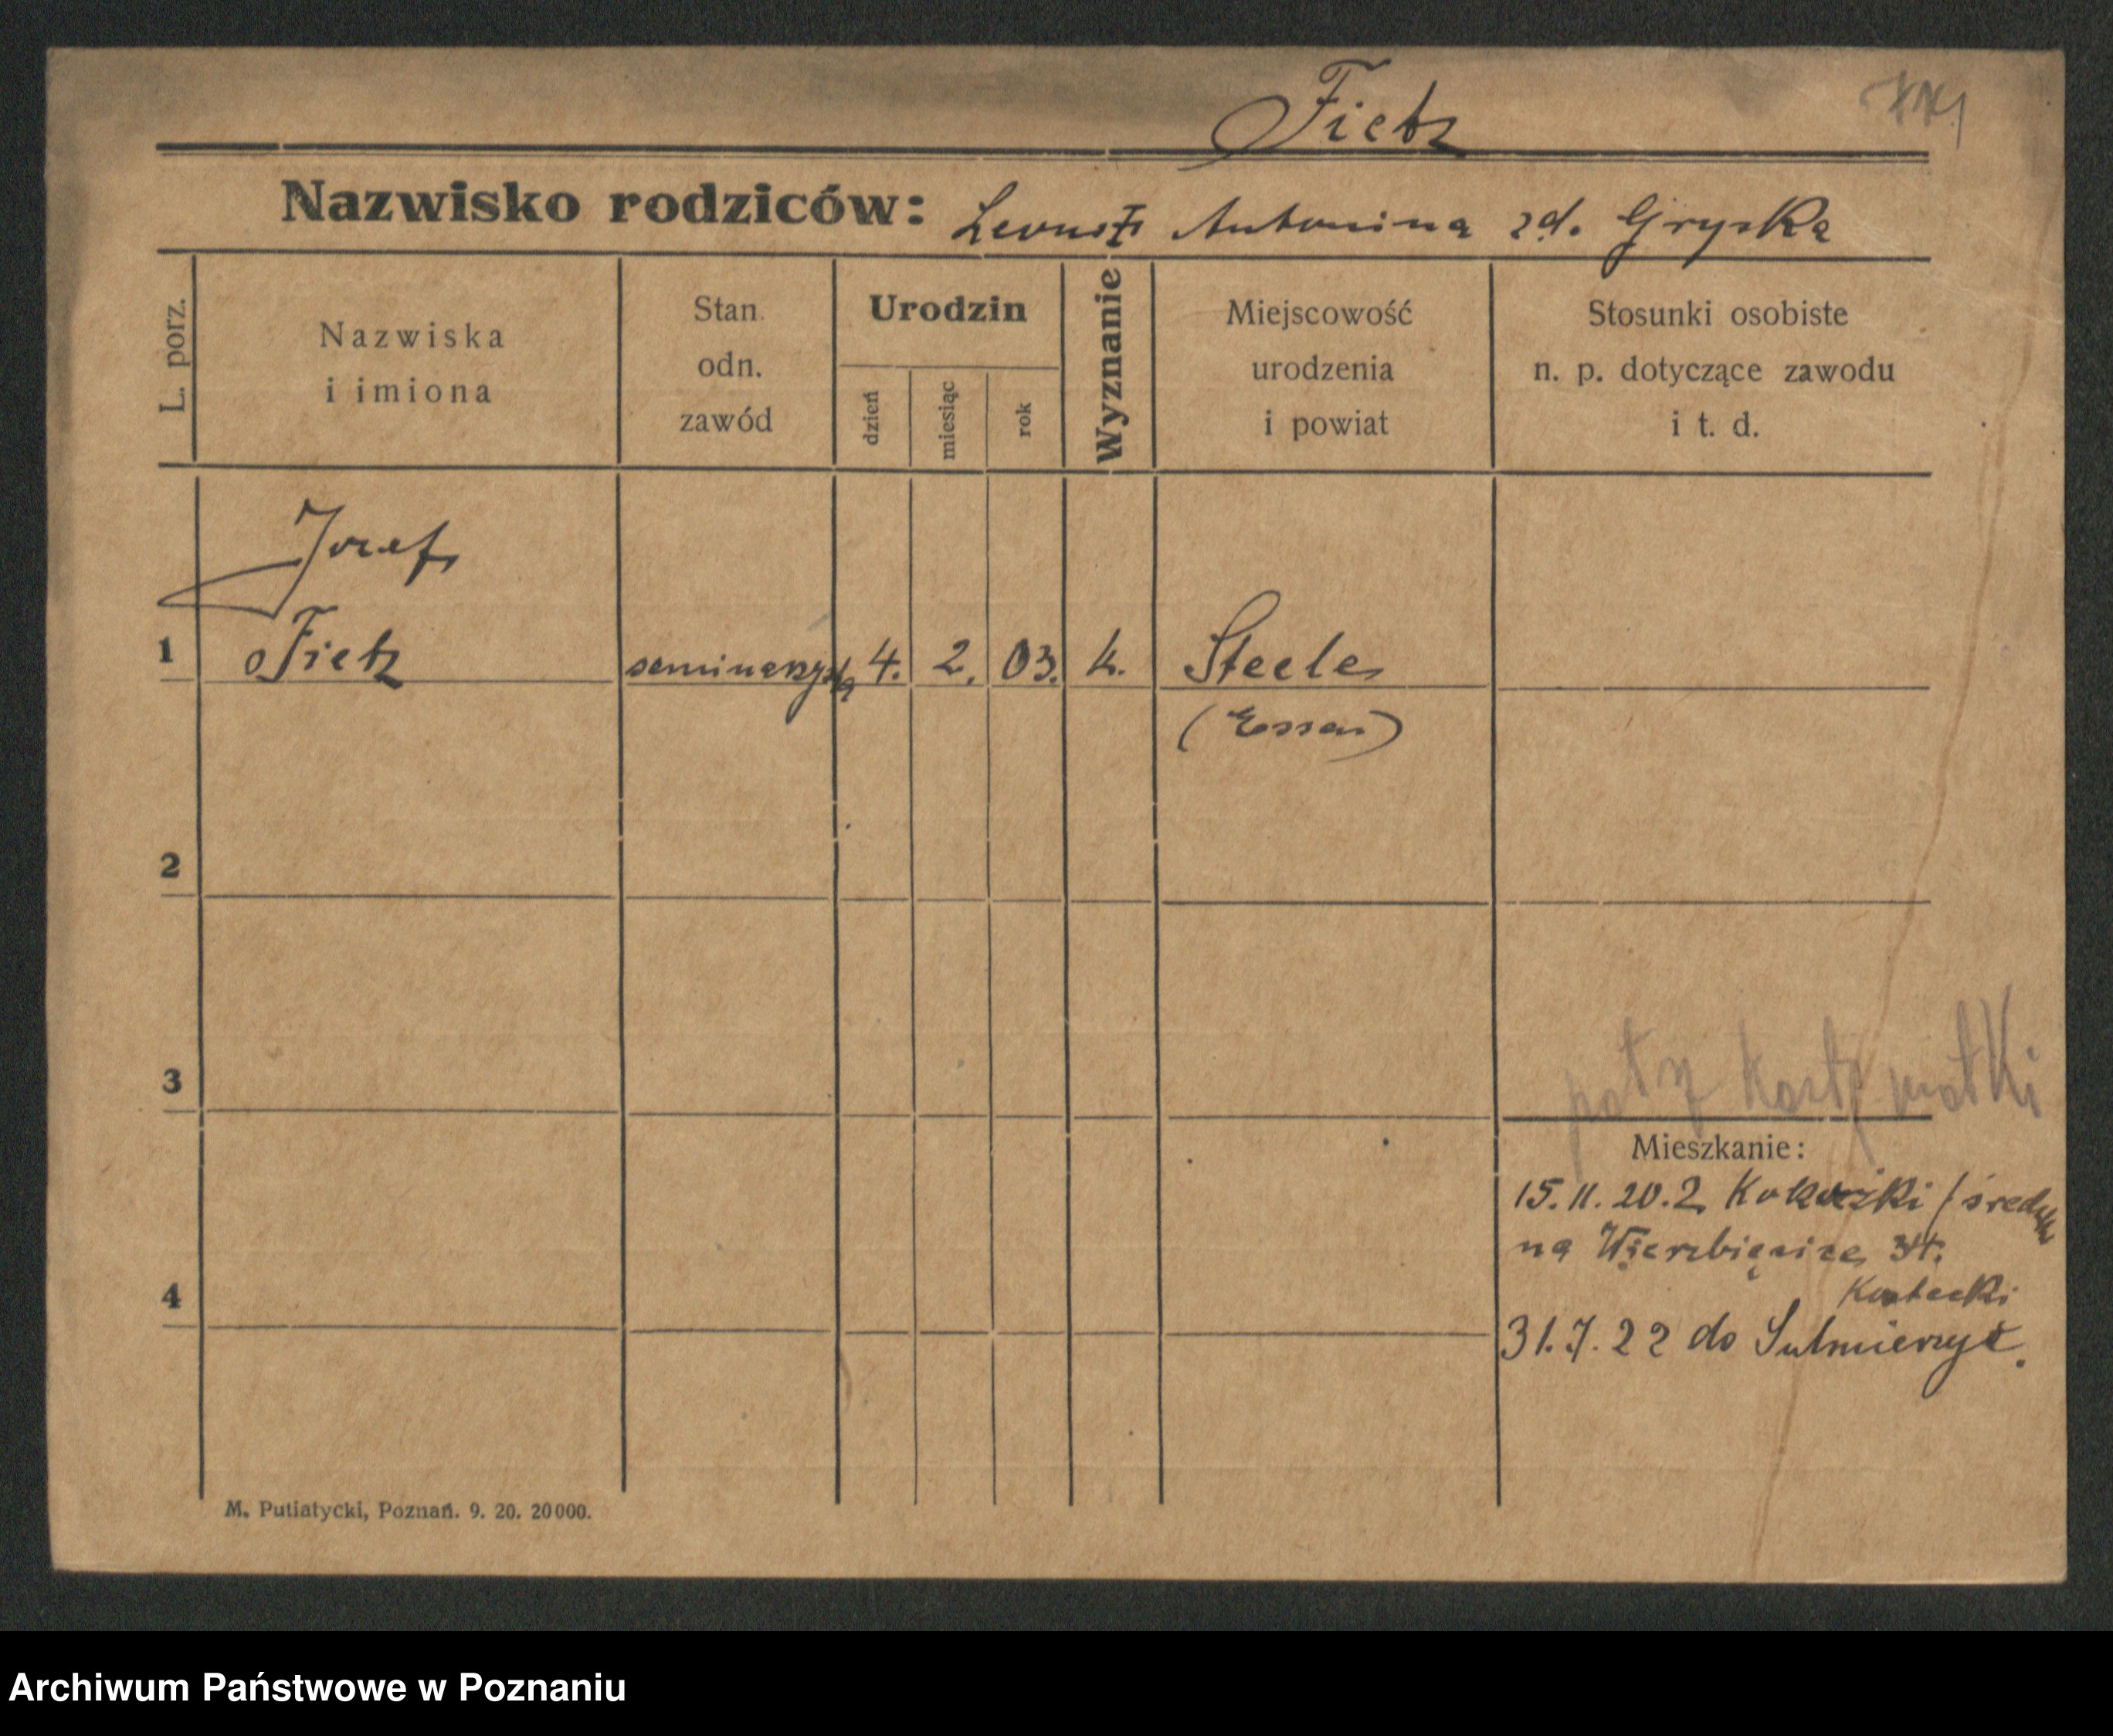 Fietz
Nazwisko rodziców: Antonina zd. Gryska
L. porz.
Nazwiska
i imiona
Stan
odn.
zawód
Urodzin
dzień
miesiąc
rok
Wyznanie
Miejscowość
urodzenia
i powiat
Stosunki osobiste
n. p. dotyczące zawodu
i t. d.
Jozef
1 Fietz seminarzysta 4. 2. 03. k. Steele
(Essen)
2
3
patrz kartę matki
Mieszkanie:
15. 11. 20. Z
na Wierzbięcice
31. 7. 22 do Sulmierzyc.
4
M. Putiatycki, Poznań. 9. 20. 20000.
Archiwum Państwowe w Poznaniu